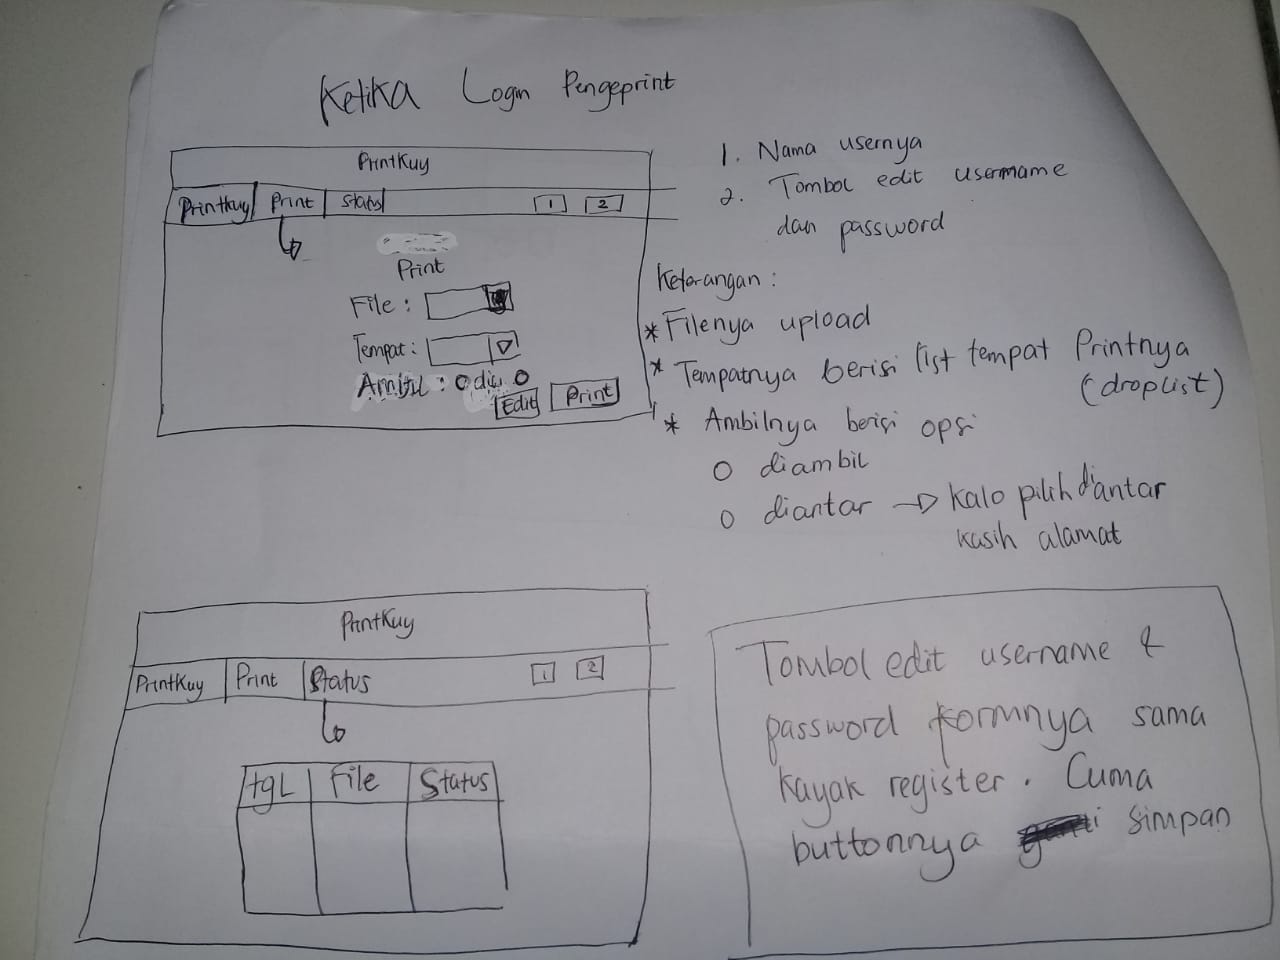 Ketika Login Pengeprint
PrintKuy
Printkuy Print Status 1 2
Print
File :
Tempat :
Ambil : O dia O
Edit Print
1. Nama usernya
2. Tombol edit username
dan password
Keterangan :
* Filenya upload
* Tempatnya berisi list tempat Printnya
(droplist)
* Ambilnya berisi opsi
O diambil
O diantar → Kalo pilih diantar
kasih alamat
PrintKuy
PrintKuy Print Status 1 2
tgL File Status
Tombol edit username &
password formnya sama
kayak register. Cuma
buttonnya simpan